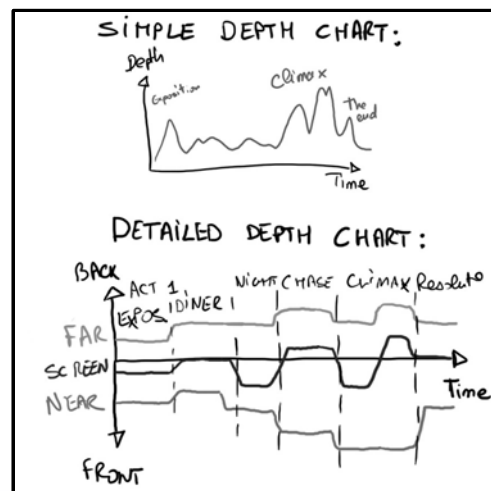 SIMPLE DEPTH CHART:
Depth
Exposition
Climax
The
end
Time
DETAILED DEPTH CHART:
BACK
ACT 1
EXPOS DINER NIGHT CHASE CLIMAX Resolutio
FAR
SCREEN
Time
NEAR
FRONT